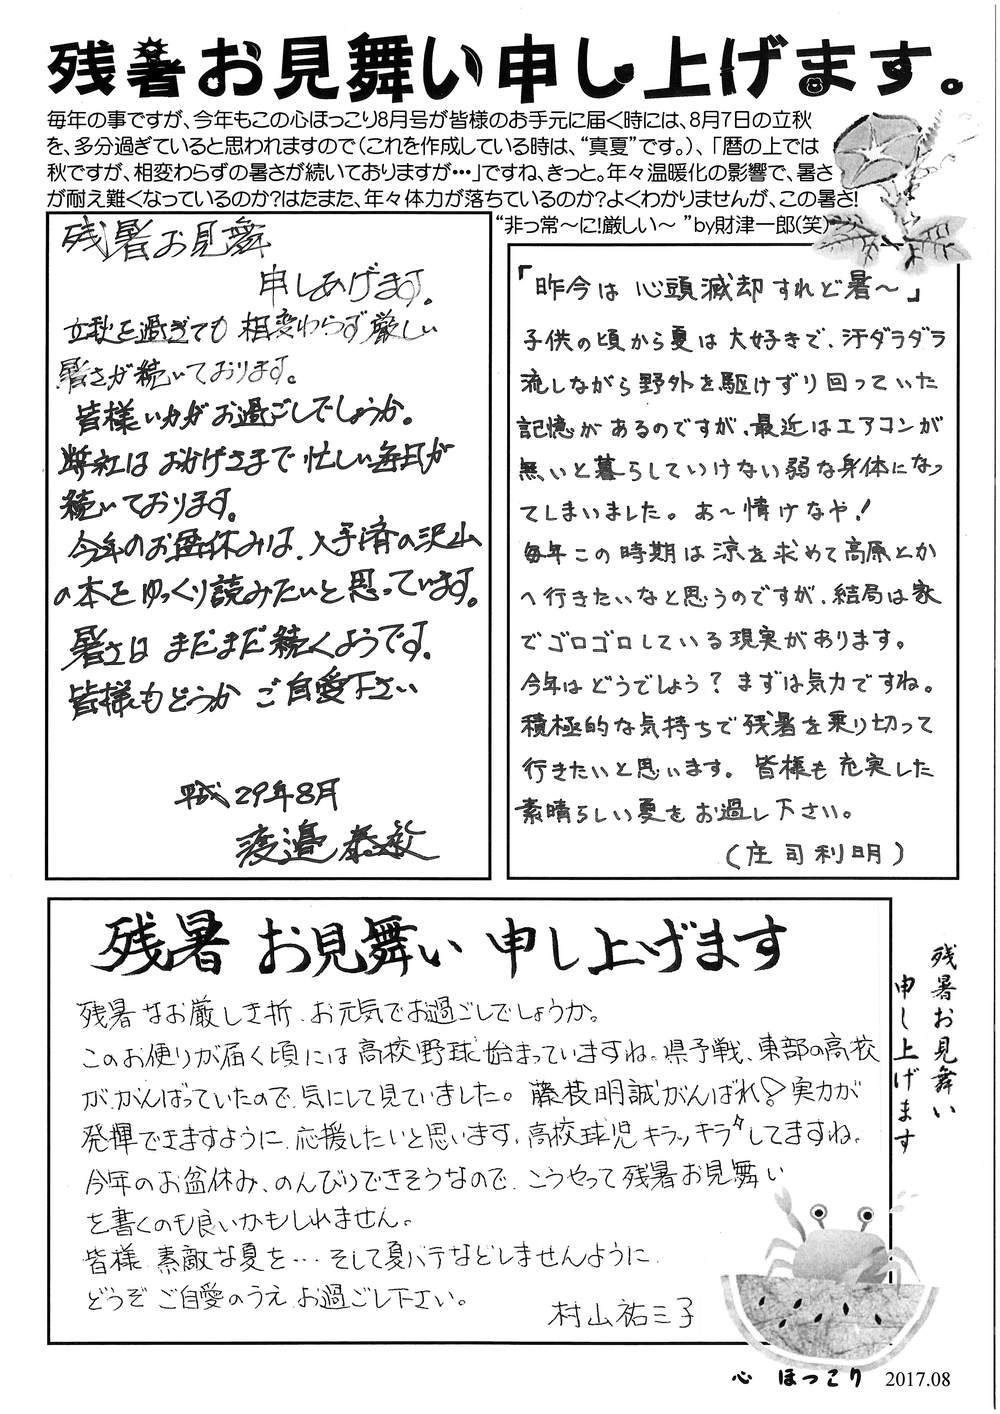 残暑お見舞い申し上げます。
毎年の事ですが、今年もこの心ほっこり8月号が皆様のお手元に届く時には、8月7日の立秋
を、多分過ぎていると思われますので（これを作成している時は、“真夏”です。）、「暦の上では
秋ですが、相変わらずの暑さが続いておりますが・・・」ですね、きっと。年々温暖化の影響で、暑さ
が耐え難くなっているのか?はたまた、年々体力が落ちているのか?よくわかりませんが、この暑さ!
“非っ常～に!厳しい～ ”by財津一郎(笑)
残暑お見舞
申しあげます。
立秋を過ぎても 相変わらず厳しい
暑さが続いております。
皆様いかがお過ごしでしょうか。
弊社はおかげさまで忙しい毎日が
続いております。
今年のお盆休みは、入手済の沢山
の本をゆっくり読みたいと思っています。
暑さはまだまだ続くようです。
皆様もどうか ご自愛下さい
平成29年8月
渡邉泰敏
「昨今は 心頭滅却すれど暑～」
子供の頃から夏は大好きで、汗ダラダラ
流しながら野外を駆けずり回っていた
記憶があるのですが、最近はエアコンが
無いと暮らしていけない弱な身体になっ
てしまいました。あ～情けなや!
毎年この時期は涼を求めて高原とか
へ行きたいなと思うのですが、結局は家
でゴロゴロしている現実があります。
今年はどうでしょう?まずは気力ですね。
積極的な気持ちで残暑を乗り切って
行きたいと思います。皆様も充実した
素晴らしい夏をお過し下さい。
(庄司利明)
残暑お見舞い申し上げます
残暑なお厳しき折、お元気でお過ごしでしょうか。
このお便りが届く頃には高校野球始まっていますね。県予戦、東部の高校
が、がんばっていたので、気にして見ていました。藤枝明誠がんばれ!実力が
発揮できますように、応援したいと思います。高校球児キラッキラしてますね。
今年のお盆休み、のんびりできそうなので、こうやって残暑お見舞い
を書くのも良いかもしれません。
皆様 素敵な夏を…そして夏バテなどしませんように
どうぞ ご自愛のうえ お過ごし下さい。
村山祐三子
残暑お見舞い
申し上げます
心 ほっこり 2017.08